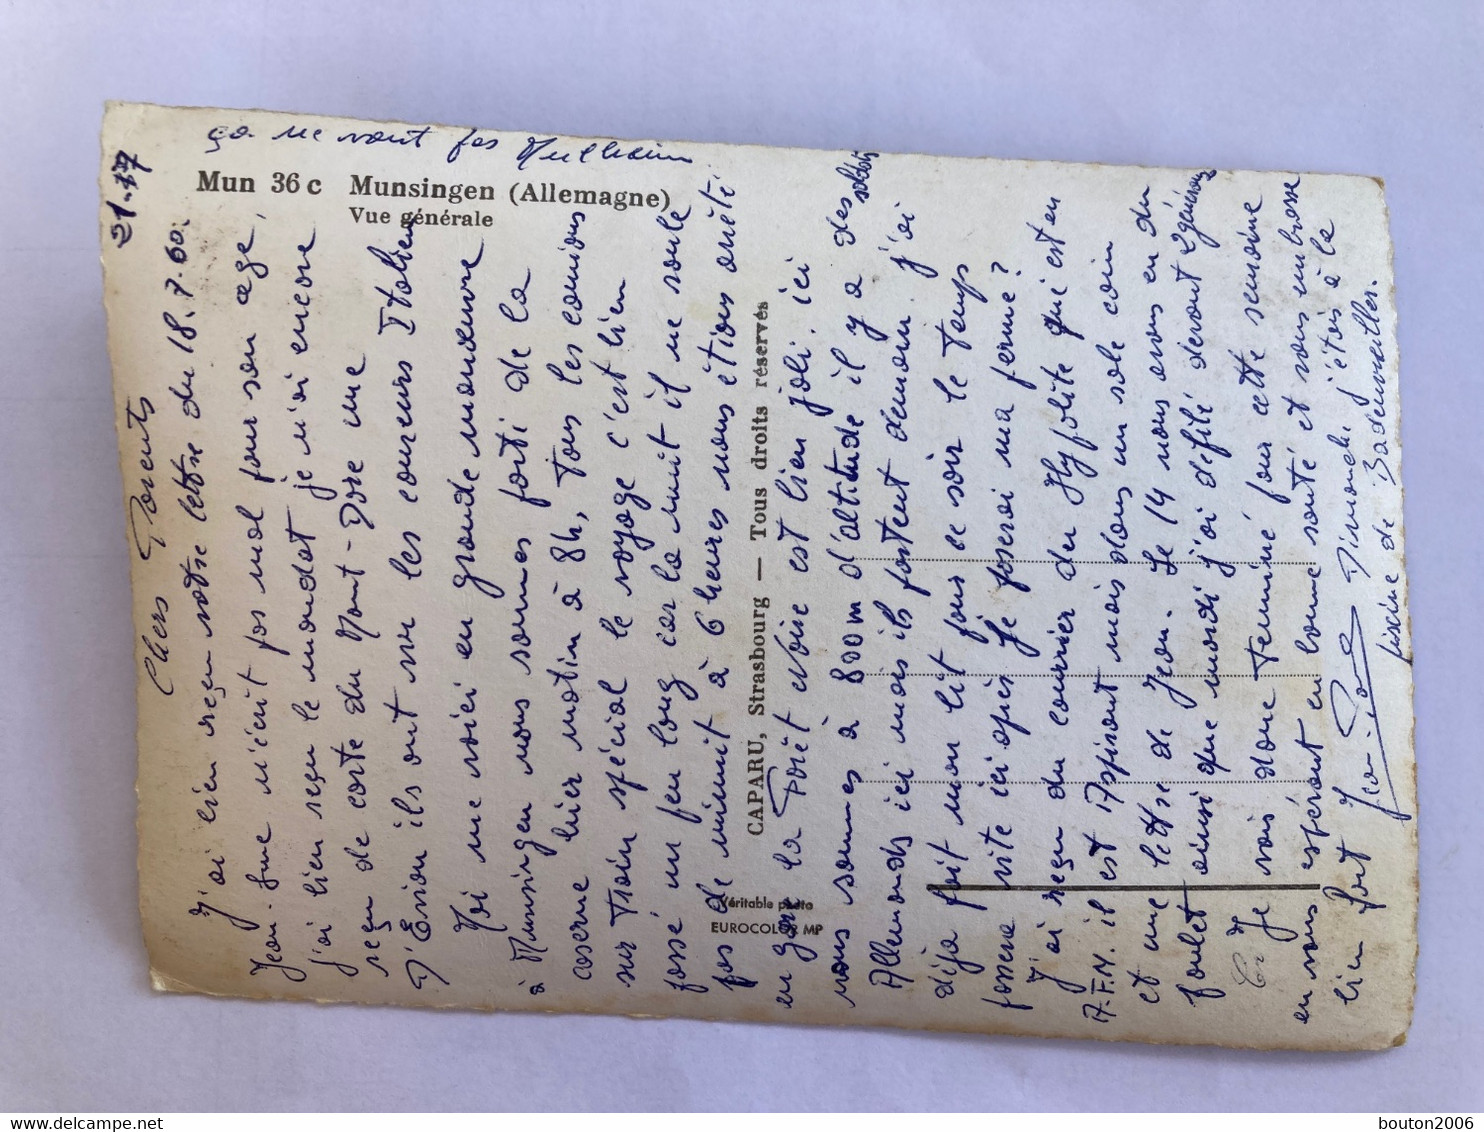 ça ne vaut pas Mulheim
Mun 36 c Munsingen (Allemagne)
Vue générale
Chers Parents
J'ai bien reçu votre lettre du 18.7.60.
Jean- n'écrit pas mal pour son age,
j'ai bien reçu le mandat je n'ai encore
reçu de carte du Mont-Dore une
D' ils ont vu les coureurs Italiens
Moi me voici en grande manœuvre
à Munsingen nous sommes parti de la
caserne hier matin à 8h, tous les camions
sur train spécial le voyage c'est bien
passé un peu long car la nuit il ne roule
pas de minuit à 6 heures nous étions arrêté
en gare la Forêt Noire est bien joli. ici
nous sommes à 800m d'altitude il y a des soldats
Allemands ici mais ils partent demain. j'ai
déja fait mon lit pour ce soir le temps
passera vite ici après je ferai ma ferme?
J'ai reçu du courrier du Hypolite qui est en
A.F.N. il est Aspirant mais dans un sale coin
et une lettre de Jean. Le 14 nous avons eu du
poulet ainsi que mardi j'ai défilé devant 2 généraux
Je vais donc terminé pour cette semaine
en vous espérant en bonne santé et vous embrasse
bien fort Jean-Paul Dimanche j'étais à la
piscine de Badenweiller.
CAPARU, Strasbourg — Tous droits réservés
Véritable photo
EUROCOLOR MP
www.delcampe.net
bouton2006